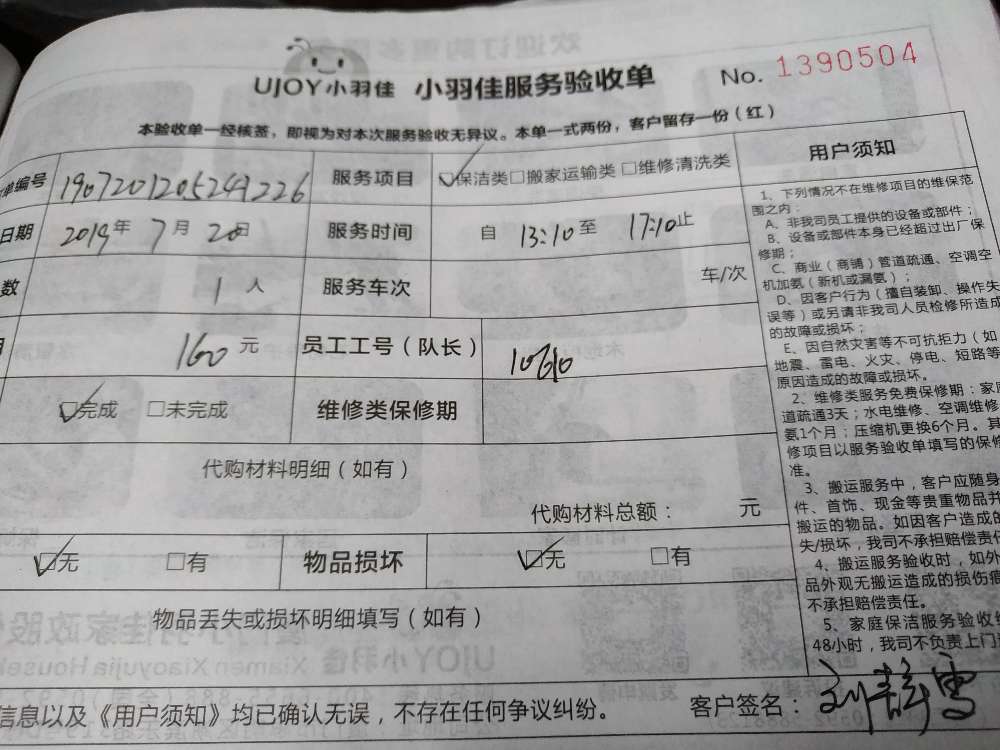 UJOY小羽佳 小羽佳服务验收单 No. 1390504
本验收单一经核签，即视为对本次服务验收无异议。本单一式两份，客户留存一份（红）
单编号 服务项目 ☑保洁类□搬家运输类□维修清洗类 用户须知
日期 2019年 7月 20日 服务时间 自 13:10 至 17:10 止
数 1 人 服务车次 车/次
160 元 员工工号（队长） 10610
☑完成 □未完成 维修类保修期
代购材料明细（如有）
代购材料总额： 元
☑无 □有 物品损坏 ☑无 □有
物品丢失或损坏明细填写（如有）
信息以及《用户须知》均已确认无误，不存在任何争议纠纷。 客户签名：
1、下列情况不在维修项目的维保范
围之内：
A、非我司员工提供的设备或部件；
B、设备或部件本身已经超过出厂保
修期；
C、商业（商铺）管道疏通、空调空
机加氨（新机或漏氨）；
D、因客户行为（擅自装卸、操作失
误等）或另请非我司人员检修所造成
的故障或损坏；
E、因自然灾害等不可抗拒力（如
地震、雷电、火灾、停电、短路等
原因造成的故障或损坏。
2、维修类服务免费保修期：家庭
道疏通3天；水电维修、空调维修
氨1个月；压缩机更换6个月。其
修项目以服务验收单填写的保修
准。
3、搬运服务中，客户应随身
件、首饰、现金等贵重物品并
搬运的物品。如因客户造成的
失/损坏，我司不承担赔偿责任
4、搬运服务验收时，如外
品外观无搬运造成的损伤痕
不承担赔偿责任。
5、家庭保洁服务验收
48小时，我司不负责上门